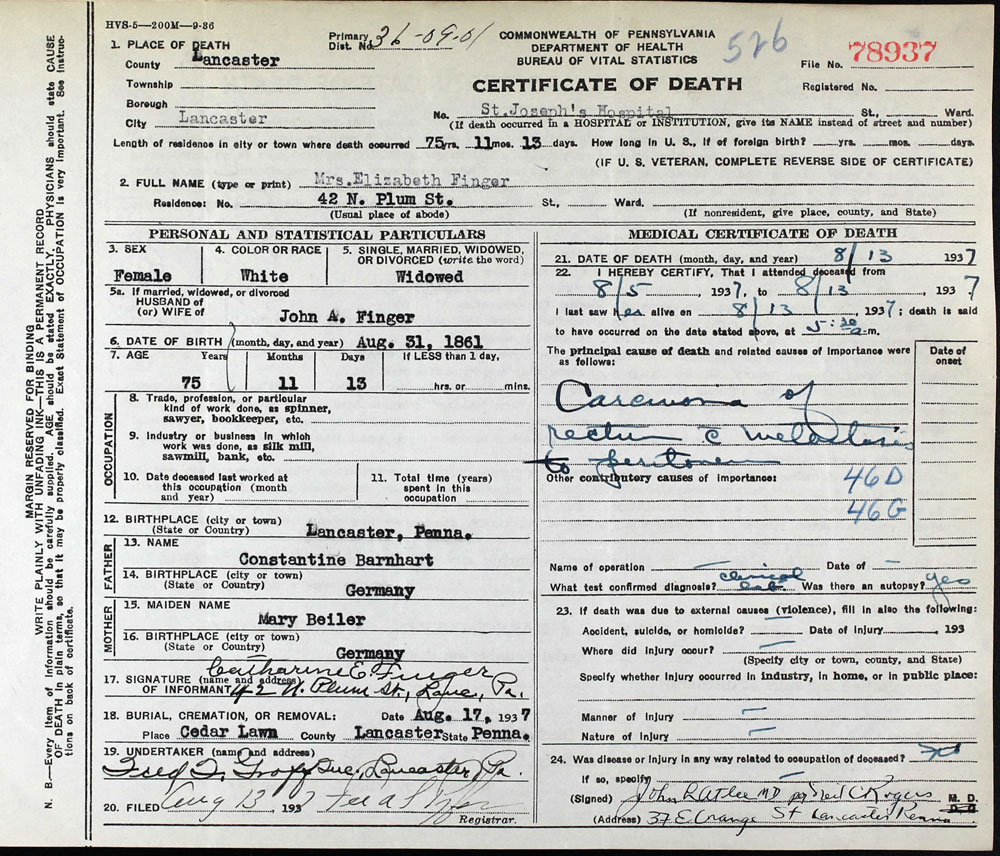 HVS-5—200M—9-36
Primary Dist. No. 36-09-01
COMMONWEALTH OF PENNSYLVANIA
DEPARTMENT OF HEALTH
BUREAU OF VITAL STATISTICS
526
File No. 78937
CERTIFICATE OF DEATH
Registered No.
1. PLACE OF DEATH
County Lancaster
Township
Borough
City Lancaster
No. St.Joseph's Hospital St., Ward.
(If death occurred in a HOSPITAL or INSTITUTION, give its NAME instead of street and number)
Length of residence in city or town where death occurred 75 yrs. 11 mos. 13 days. How long in U. S., if of foreign birth? yrs. mos. days.
(IF U. S. VETERAN, COMPLETE REVERSE SIDE OF CERTIFICATE)
2. FULL NAME (type or print) Mrs.Elizabeth Finger
Residence: No. 42 N. Plum St. St., Ward.
(Usual place of abode)
(If nonresident, give place, county, and State)
PERSONAL AND STATISTICAL PARTICULARS
3. SEX
Female
4. COLOR OR RACE
White
5. SINGLE, MARRIED, WIDOWED, OR DIVORCED (write the word)
Widowed
5a. If married, widowed, or divorced
HUSBAND of
(or) WIFE of
John A. Finger
6. DATE OF BIRTH (month, day, and year) Aug. 31, 1861
7. AGE Years Months Days If LESS than 1 day,
75 11 13 hrs. or mins.
OCCUPATION
8. Trade, profession, or particular
kind of work done, as spinner,
sawyer, bookkeeper, etc.
9. Industry or business in which
work was done, as silk mill,
sawmill, bank, etc.
10. Date deceased last worked at
this occupation (month
and year)
11. Total time (years)
spent in this
occupation
12. BIRTHPLACE (city or town)
(State or Country)
Lancaster, Penna.
FATHER
13. NAME
Constantine Barnhart
14. BIRTHPLACE (city or town)
(State or Country)
Germany
MOTHER
15. MAIDEN NAME
Mary Beiler
16. BIRTHPLACE (city or town)
(State or Country)
Germany
17. SIGNATURE (name and address)
OF INFORMANT
Catharine E. Finger
42 N. Plum St., Lanc., Pa.
18. BURIAL, CREMATION, OR REMOVAL: Date Aug. 17, 1937
Place Cedar Lawn County Lancaster State Penna.
19. UNDERTAKER (name and address)
Fred F. Groff Inc., Lancaster, Pa.
20. FILED Aug 193
Registrar.
MEDICAL CERTIFICATE OF DEATH
21. DATE OF DEATH (month, day, and year) 8/13 1937
22. I HEREBY CERTIFY, That I attended deceased from
8/5, 1937, to 8/13, 1937
I last saw her alive on 8/13, 1937; death is said
to have occurred on the date stated above, at 5:30 a.m.
The principal cause of death and related causes of importance were
as follows:
Date of
onset
Carcinoma of
rectum c̄ metastasis
to peritoneum
Other contributory causes of importance:
46D
46G
Name of operation — Date of —
What test confirmed diagnosis? clinical lab. Was there an autopsy? yes
23. If death was due to external causes (violence), fill in also the following:
Accident, suicide, or homicide? — Date of injury , 193
Where did injury occur? —
(Specify city or town, county, and State)
Specify whether injury occurred in industry, in home, or in public place:
Manner of injury —
Nature of injury —
24. Was disease or injury in any way related to occupation of deceased?
If so, specify —
(Signed) John R Atlee MD per Neil C Rogers M. D.
(Address) 37 E. Orange St Lancaster Penna
MARGIN RESERVED FOR BINDING
WRITE PLAINLY WITH UNFADING INK—THIS IS A PERMANENT RECORD
N. B.—Every item of information should be carefully supplied. AGE should be stated EXACTLY. PHYSICIANS should state CAUSE
OF DEATH in plain terms, so that it may be properly classified. Exact Statement of OCCUPATION is very important. See instruc-
tions on back of certificate.